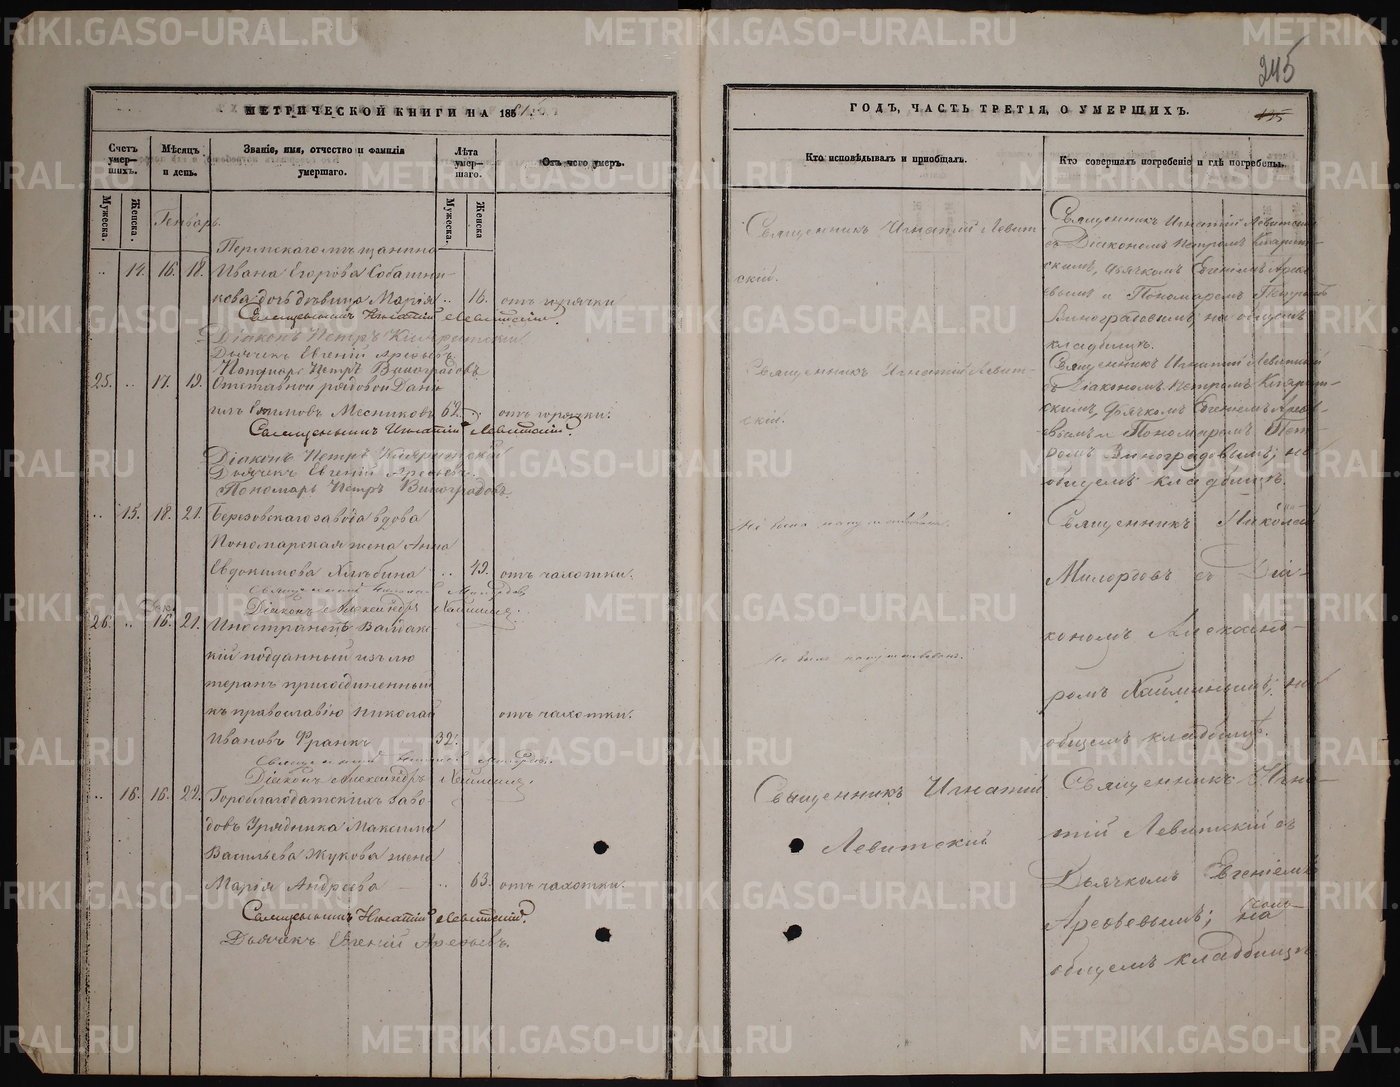 245
МЕТРИЧЕСКОЙ КНИГИ НА 1861.
Счетъ умер-шихъ.
Мѣсяцъ и день.
Званіе, имя, отчество и фамилія умершаго.
Лѣта умер-шаго.
Отъ чего умеръ.
Мужеска.
Женска.
Мужеска.
Женска.
Генварь.
Пермскаго мѣщанина
.. 14. 16. 18. Ивана Егорова Собашни-
кова дочь дѣвица Марія .. 16. отъ горячки
Священникъ Игнатій Левитскій.
Діаконъ Петръ
Дьячекъ Евгеній Арефьевъ.
Пономарь Петръ Виноградовъ
25. .. 17. 19. Отставной рядовой Дані-
илъ Месниковъ 62. .. отъ горячки.
Священникъ Игнатій Левитскій.
Діаконъ Петръ
Дьячекъ Евгеній Арефьевъ.
Пономарь Петръ Виноградовъ.
.. 15. 18. 21. Березовскаго завода вдова
Пономарская жена Анна
Евдокимова .. 49. отъ чахотки.
Священникъ Николай Милордовъ
Діаконъ Александръ
26. .. 16. 21. Иностранецъ
кій подданный изъ лю-
теранъ присоединенный
къ православію Николай отъ чахотки.
Ивановъ Франкъ 32.
Священникъ Николай Милордовъ
Діаконъ Александръ
.. 16. 16. 22. Гороблагодатскихъ заво-
довъ Урядника Максима
Васильева Жукова жена
Марія Андреева .. 63. отъ чахотки.
Священникъ Игнатій Левитскій.
Дьячекъ Евгеній Арефьевъ.
ГОДЪ, ЧАСТЬ ТРЕТІЯ, О УМЕРШИХЪ.
195
Кто исповѣдывалъ и пріобщалъ.
Кто совершалъ погребеніе и гдѣ погребены.
Священникъ Игнатій Левит-
скій.
Священникъ Игнатій Левитскій
съ Діакономъ Петромъ
скимъ, дьячкомъ Евгеніемъ Арефь-
евымъ и Пономаремъ Петромъ
Виноградовымъ, на общемъ
кладбищѣ.
Священникъ Игнатій Левит-
скій.
Священникъ Игнатій Левитскій
съ Діакономъ Петромъ
скимъ, дьячкомъ Евгеніемъ Арефь-
евымъ и Пономаремъ Пет-
ромъ Виноградовымъ, на
общемъ кладбищѣ.
Не была напутствована.
Священникъ Николай
Милордовъ съ Діа-
кономъ Александ-
ромъ на
общемъ кладбищѣ.
Не былъ напутствованъ.
Священникъ Игнатій
Левитскій
Священникъ Игна-
тій Левитскій съ
Дьячкомъ Евгеніемъ
Арефьевымъ; на
общемъ кладбищѣ.
METRIKI.GASO-URAL.RU